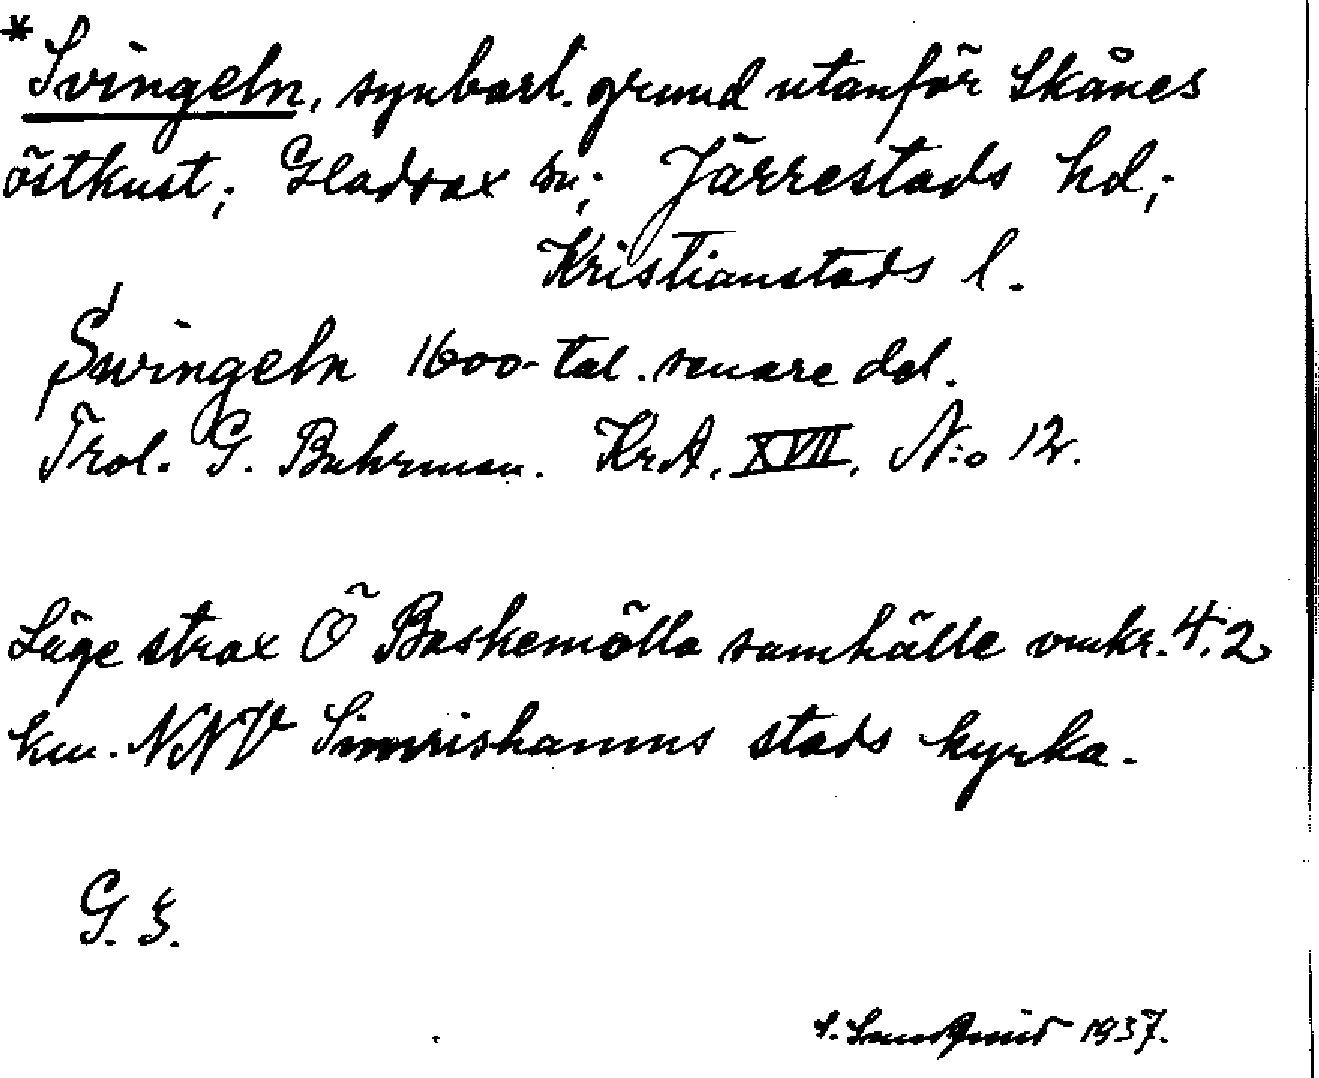 *Svingeln, synbarl. grund utanför Skånes
östkust; Gladsax sn; Järrestads hd;
Kristianstads l.
Svingeln 1600-tal. senare del.
Trol. G. Buhrman. KrA. XVII. N:o 12.
Läge strax Ö Baskemölla samhälle omkr. 4.2
km. NNV Simrishamns stads kyrka.
G. S.
1937.